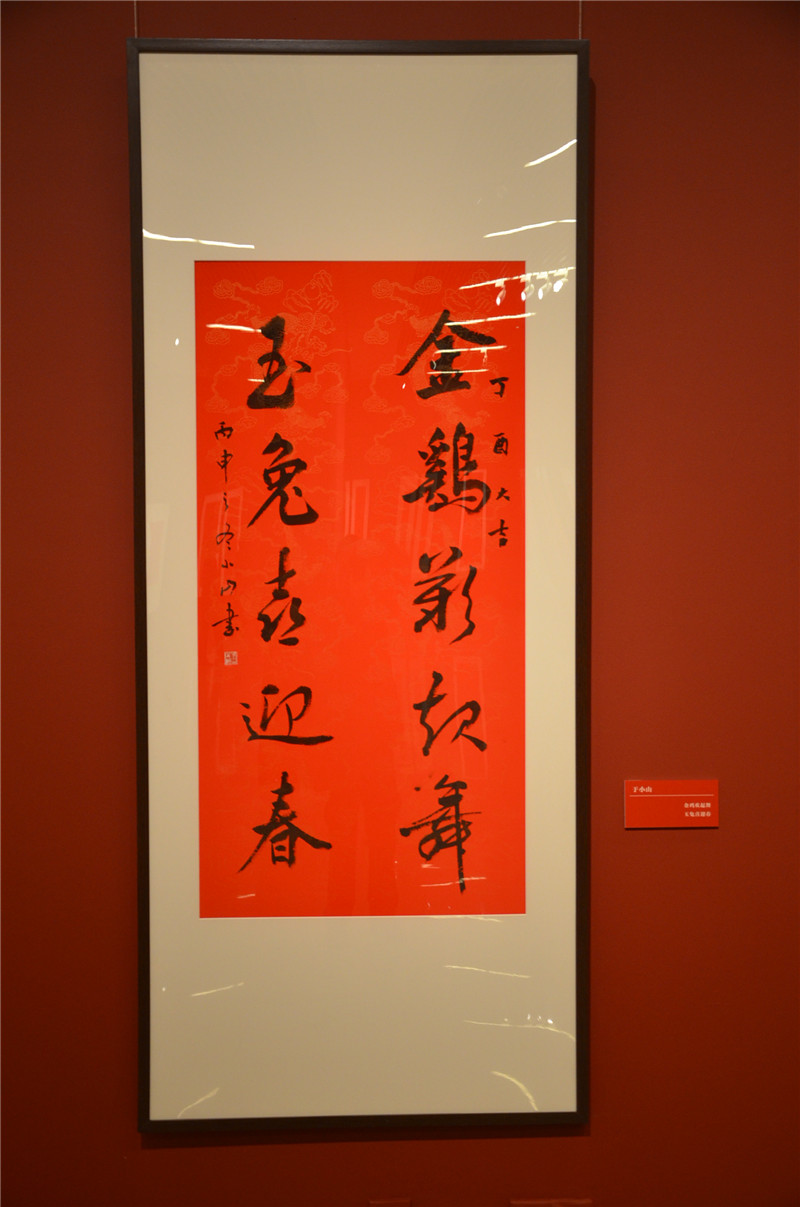 丁酉大吉
金鷄歡起舞
玉兔喜迎春
丙申之冬小山書
于小山
金鸡欢起舞
玉兔喜迎春